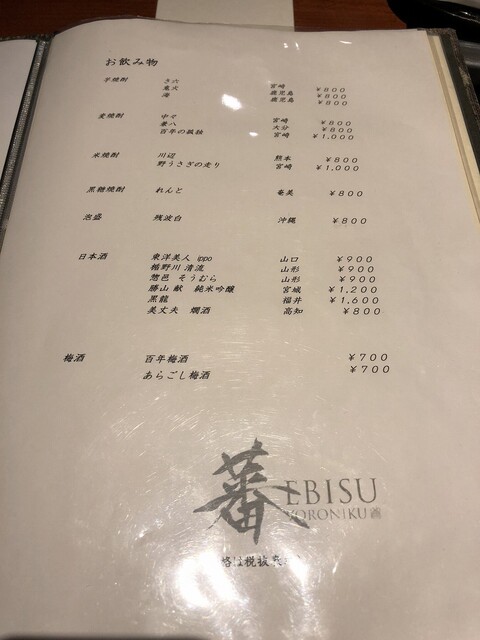 お飲み物
芋焼酎 き六 宮崎 ¥800
東火 鹿児島 ¥800
海 鹿児島 ¥800
麦焼酎 中々 宮崎 ¥800
兼八 大分 ¥800
百年の孤独 宮崎 ¥1,000
米焼酎 川辺 熊本 ¥800
野うさぎの走り 宮崎 ¥1,000
黒糖焼酎 れんと 奄美 ¥800
泡盛 残波白 沖縄 ¥800
日本酒 東洋美人 ippo 山口 ¥900
楯野川 清流 山形 ¥900
惣邑 そうむら 山形 ¥900
勝山 献 純米吟醸 宮城 ¥1,200
黒龍 福井 ¥1,600
美丈夫 燗酒 高知 ¥800
梅酒 百年梅酒 ¥700
あらごし梅酒 ¥700
蕃 EBISU
YORONIKU蕃
格は税抜表